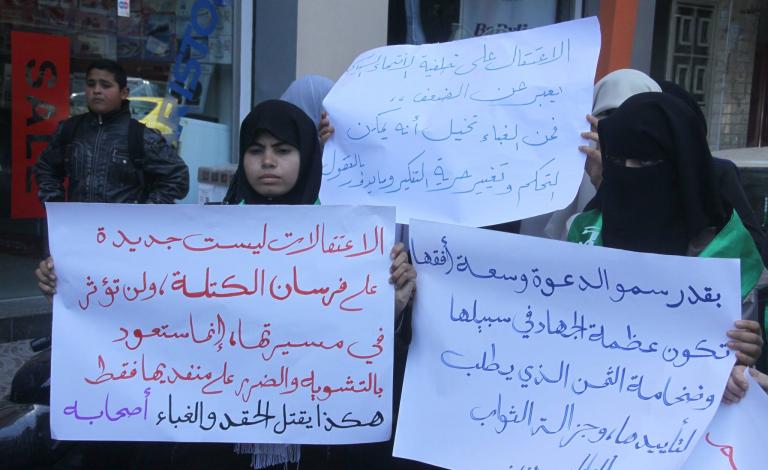 SALE
الاعتقال على خلفية الانتماء
يعبر عن الضعف ..
فمن الغباء تخيل أنه يمكن
التحكم وتغيير حرية التفكير وما يدور بالعقول
الاعتقالات ليست جديدة
على فرسان الكتلة، ولن تؤثر
في مسيرتها، إنما ستعود
بالتشويه والضرر على منفديها فقط
هكذا يقتل الحقد والغباء أصحابه
بقدر سمو الدعوة وسعة أفقها
تكون عظمة الجهاد في سبيلها
وضخامة الثمن الذي يطلب
لتأييدها، وجزالة الثواب